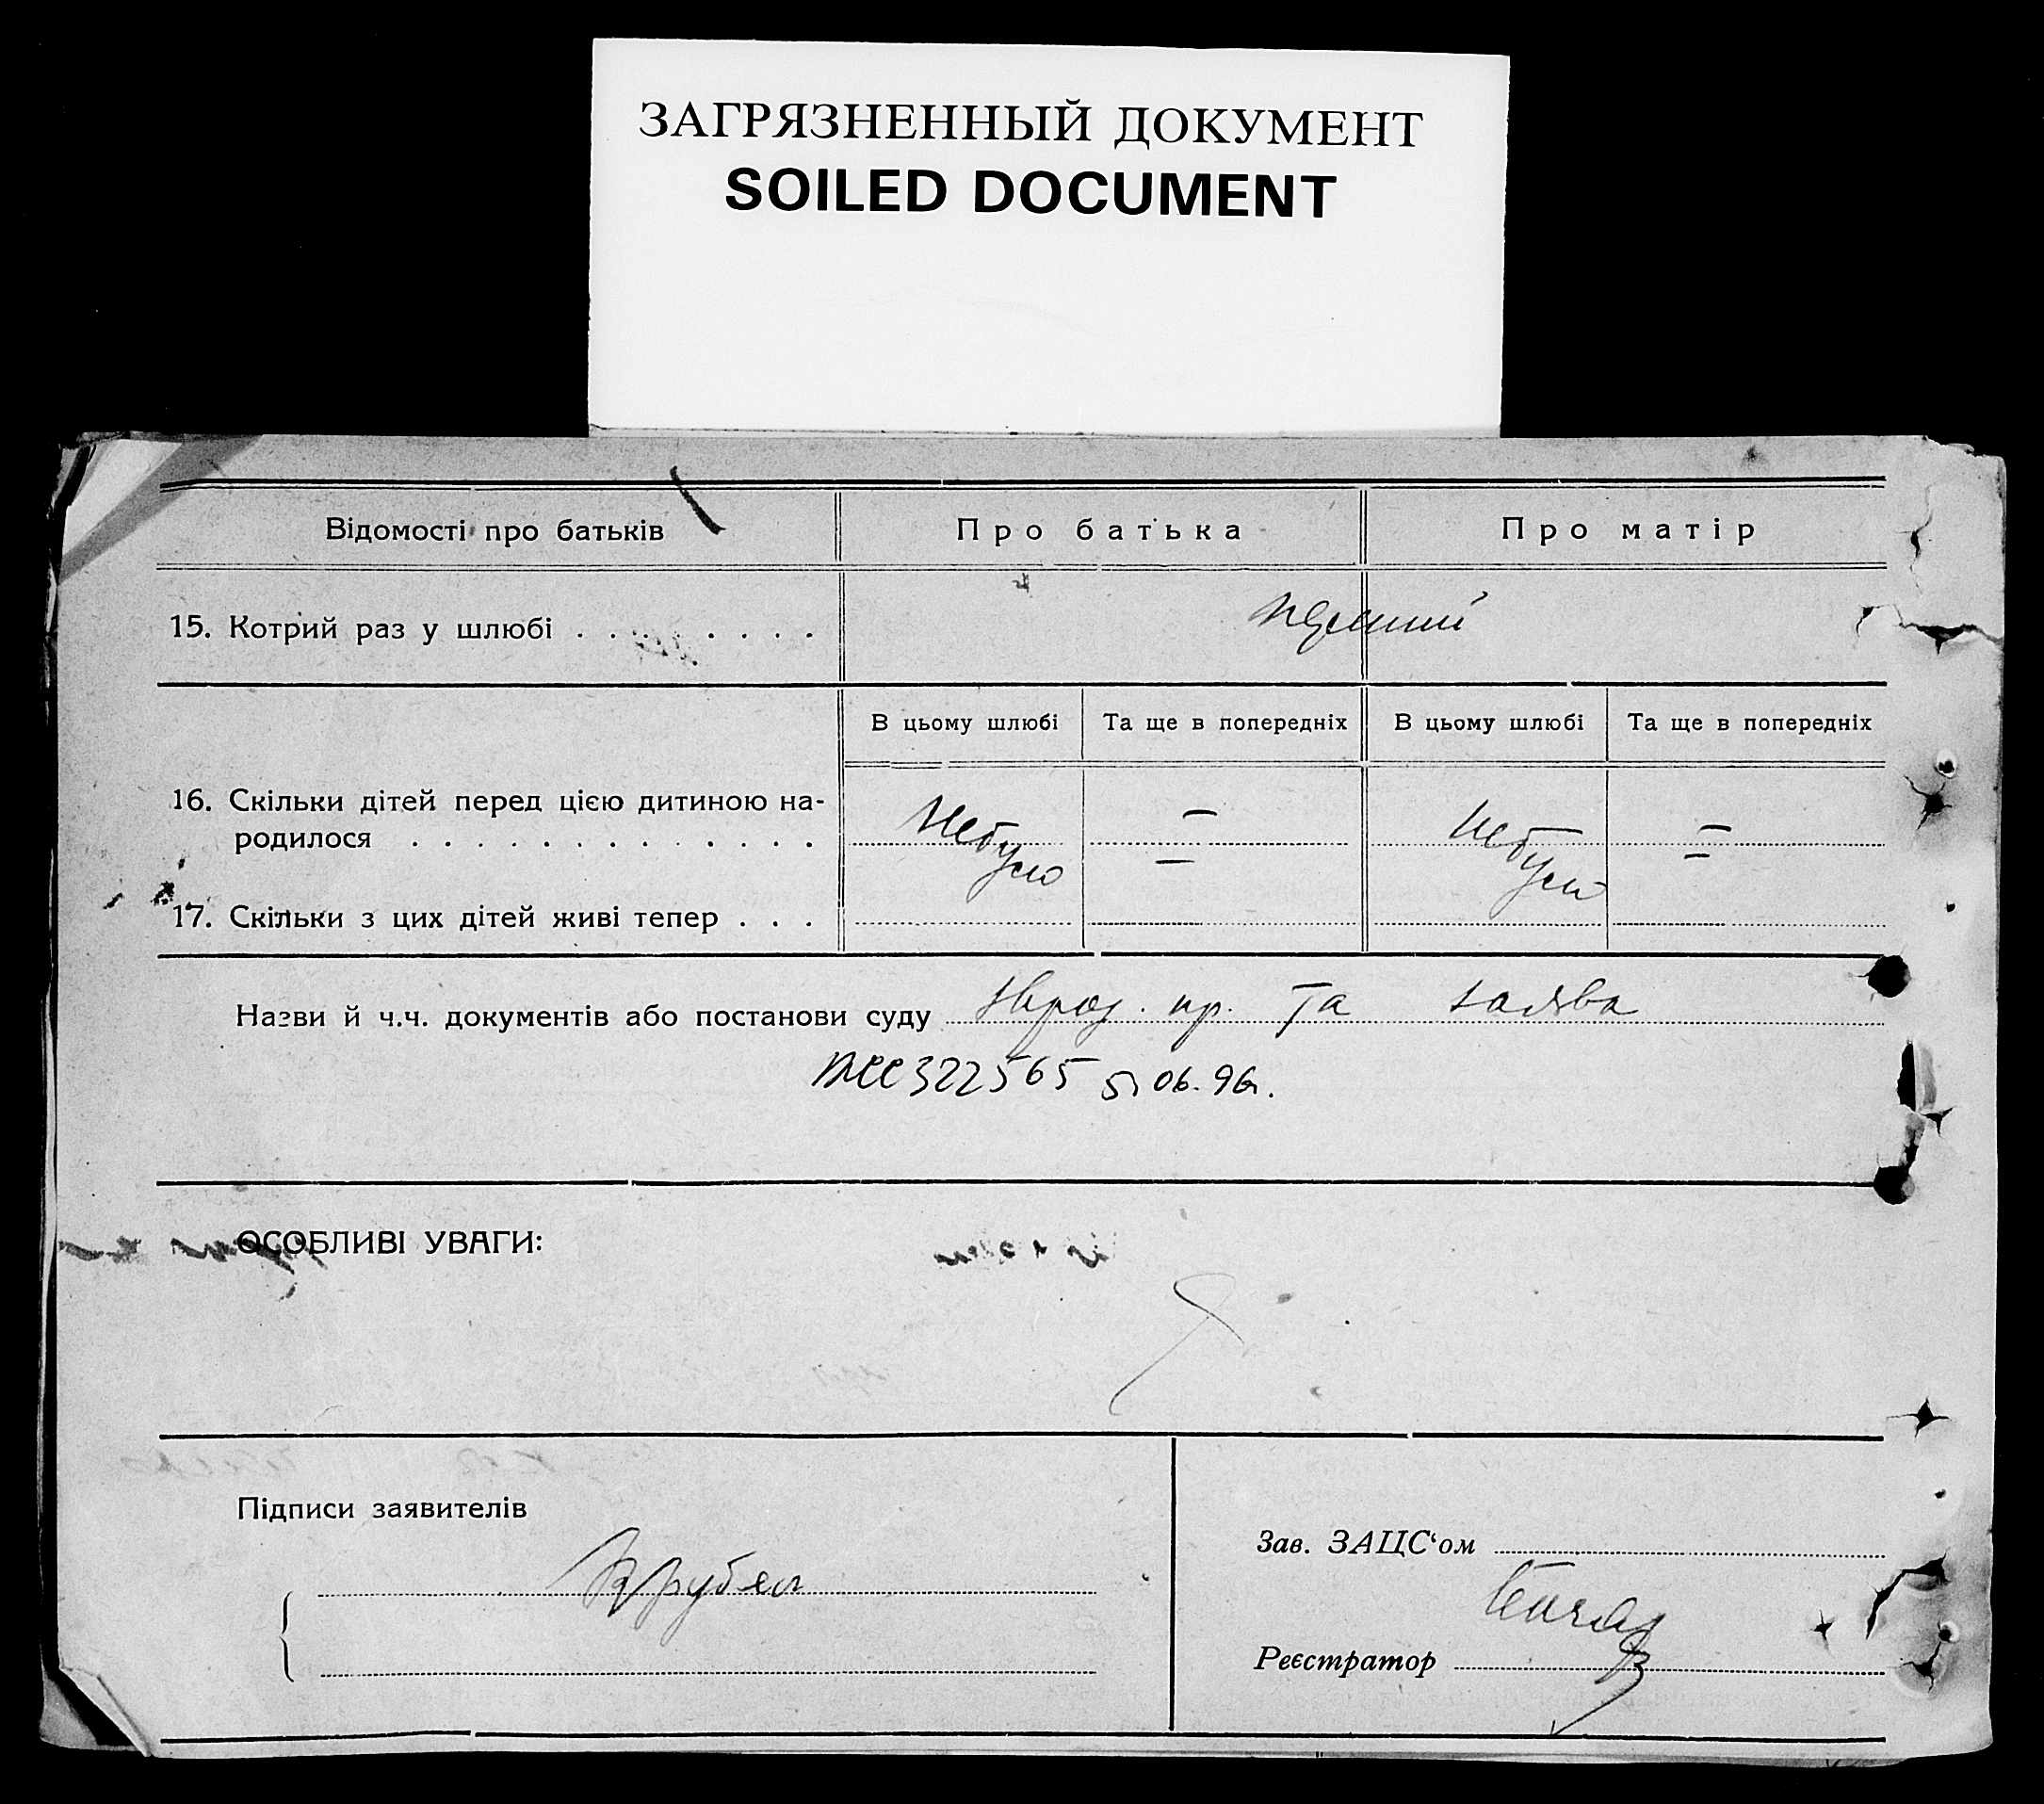 ЗАГРЯЗНЕННЫЙ ДОКУМЕНТ
SOILED DOCUMENT
Відомості про батьків
Про батька
Про матір
15. Котрий раз у шлюбі . . . . . . . .
В цьому шлюбі
Та ще в попередніх
В цьому шлюбі
Та ще в попередніх
16. Скільки дітей перед цією дитиною на-
родилося . . . . . . . . . . . . .
Небуло — Небуло —
— —
17. Скільки з цих дітей живі тепер . . .
Назви й ч.ч. документів або постанови суду пр. та заява
322565 5. 06. 96г.
ОСОБЛИВІ УВАГИ:
Підписи заявителів
Зав. ЗАЦС‘ом
Реєстратор